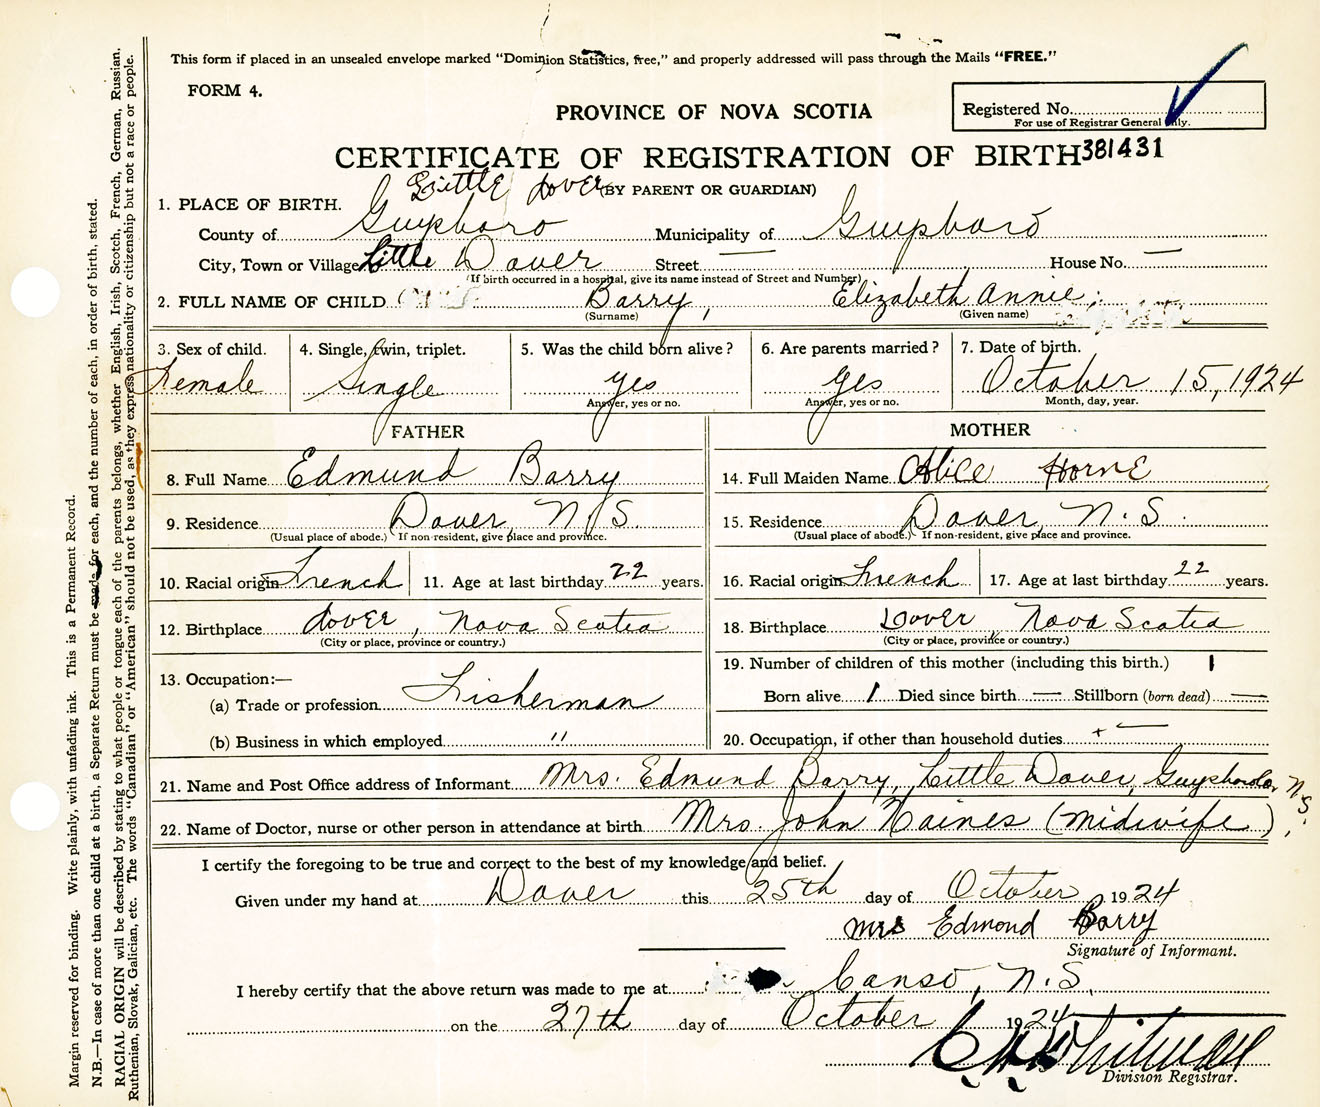 This form if placed in an unsealed envelope marked "Dominion Statistics, free," and properly addressed will pass through the Mails "FREE."
FORM 4.
Registered No.
For use of Registrar General only.
PROVINCE OF NOVA SCOTIA
CERTIFICATE OF REGISTRATION OF BIRTH 381431
Little Dover (BY PARENT OR GUARDIAN)
1. PLACE OF BIRTH.
County of Guysboro Municipality of Guysboro
City, Town or Village Little Dover Street — House No. —
(If birth occurred in a hospital, give its name instead of Street and Number)
2. FULL NAME OF CHILD Barry, Elizabeth Annie
(Surname) (Given name)
3. Sex of child. 4. Single, twin, triplet. 5. Was the child born alive? 6. Are parents married? 7. Date of birth.
Female Single Yes Yes October 15, 1924
Answer, yes or no. Answer, yes or no. Month, day, year.
FATHER MOTHER
8. Full Name Edmund Barry 14. Full Maiden Name Alice Horne
9. Residence Dover, N.S. 15. Residence Dover, N.S.
(Usual place of abode.) If non-resident, give place and province. (Usual place of abode.) If non-resident, give place and province.
10. Racial origin French 11. Age at last birthday 22 years. 16. Racial origin French 17. Age at last birthday 22 years.
12. Birthplace Dover, Nova Scotia 18. Birthplace Dover, Nova Scotia
(City or place, province or country.) (City or place, province or country.)
13. Occupation:— 19. Number of children of this mother (including this birth.) 1
(a) Trade or profession Fisherman Born alive 1 Died since birth — Stillborn (born dead) —
(b) Business in which employed " 20. Occupation, if other than household duties + —
21. Name and Post Office address of Informant Mrs. Edmund Barry, Little Dover, Guysboro Co. N.S.
22. Name of Doctor, nurse or other person in attendance at birth Mrs. John Haines (midwife),
I certify the foregoing to be true and correct to the best of my knowledge and belief.
Given under my hand at Dover this 25th day of October 1924
Mrs Edmond Barry
Signature of Informant.
I hereby certify that the above return was made to me at Canso, N.S.
on the 27th day of October 1924
Whitman
Division Registrar.
Margin reserved for binding. Write plainly, with unfading ink. This is a Permanent Record.
N.B.—In case of more than one child at a birth, a Separate Return must be made for each, and the number of each, in order of birth, stated.
RACIAL ORIGIN will be described by stating to what people or tongue each of the parents belongs, whether English, Irish, Scotch, French, German, Russian.
Ruthenian, Slovak, Galician, etc. The words "Canadian" or "American" should not be used, as they express nationality or citizenship but not a race or people.